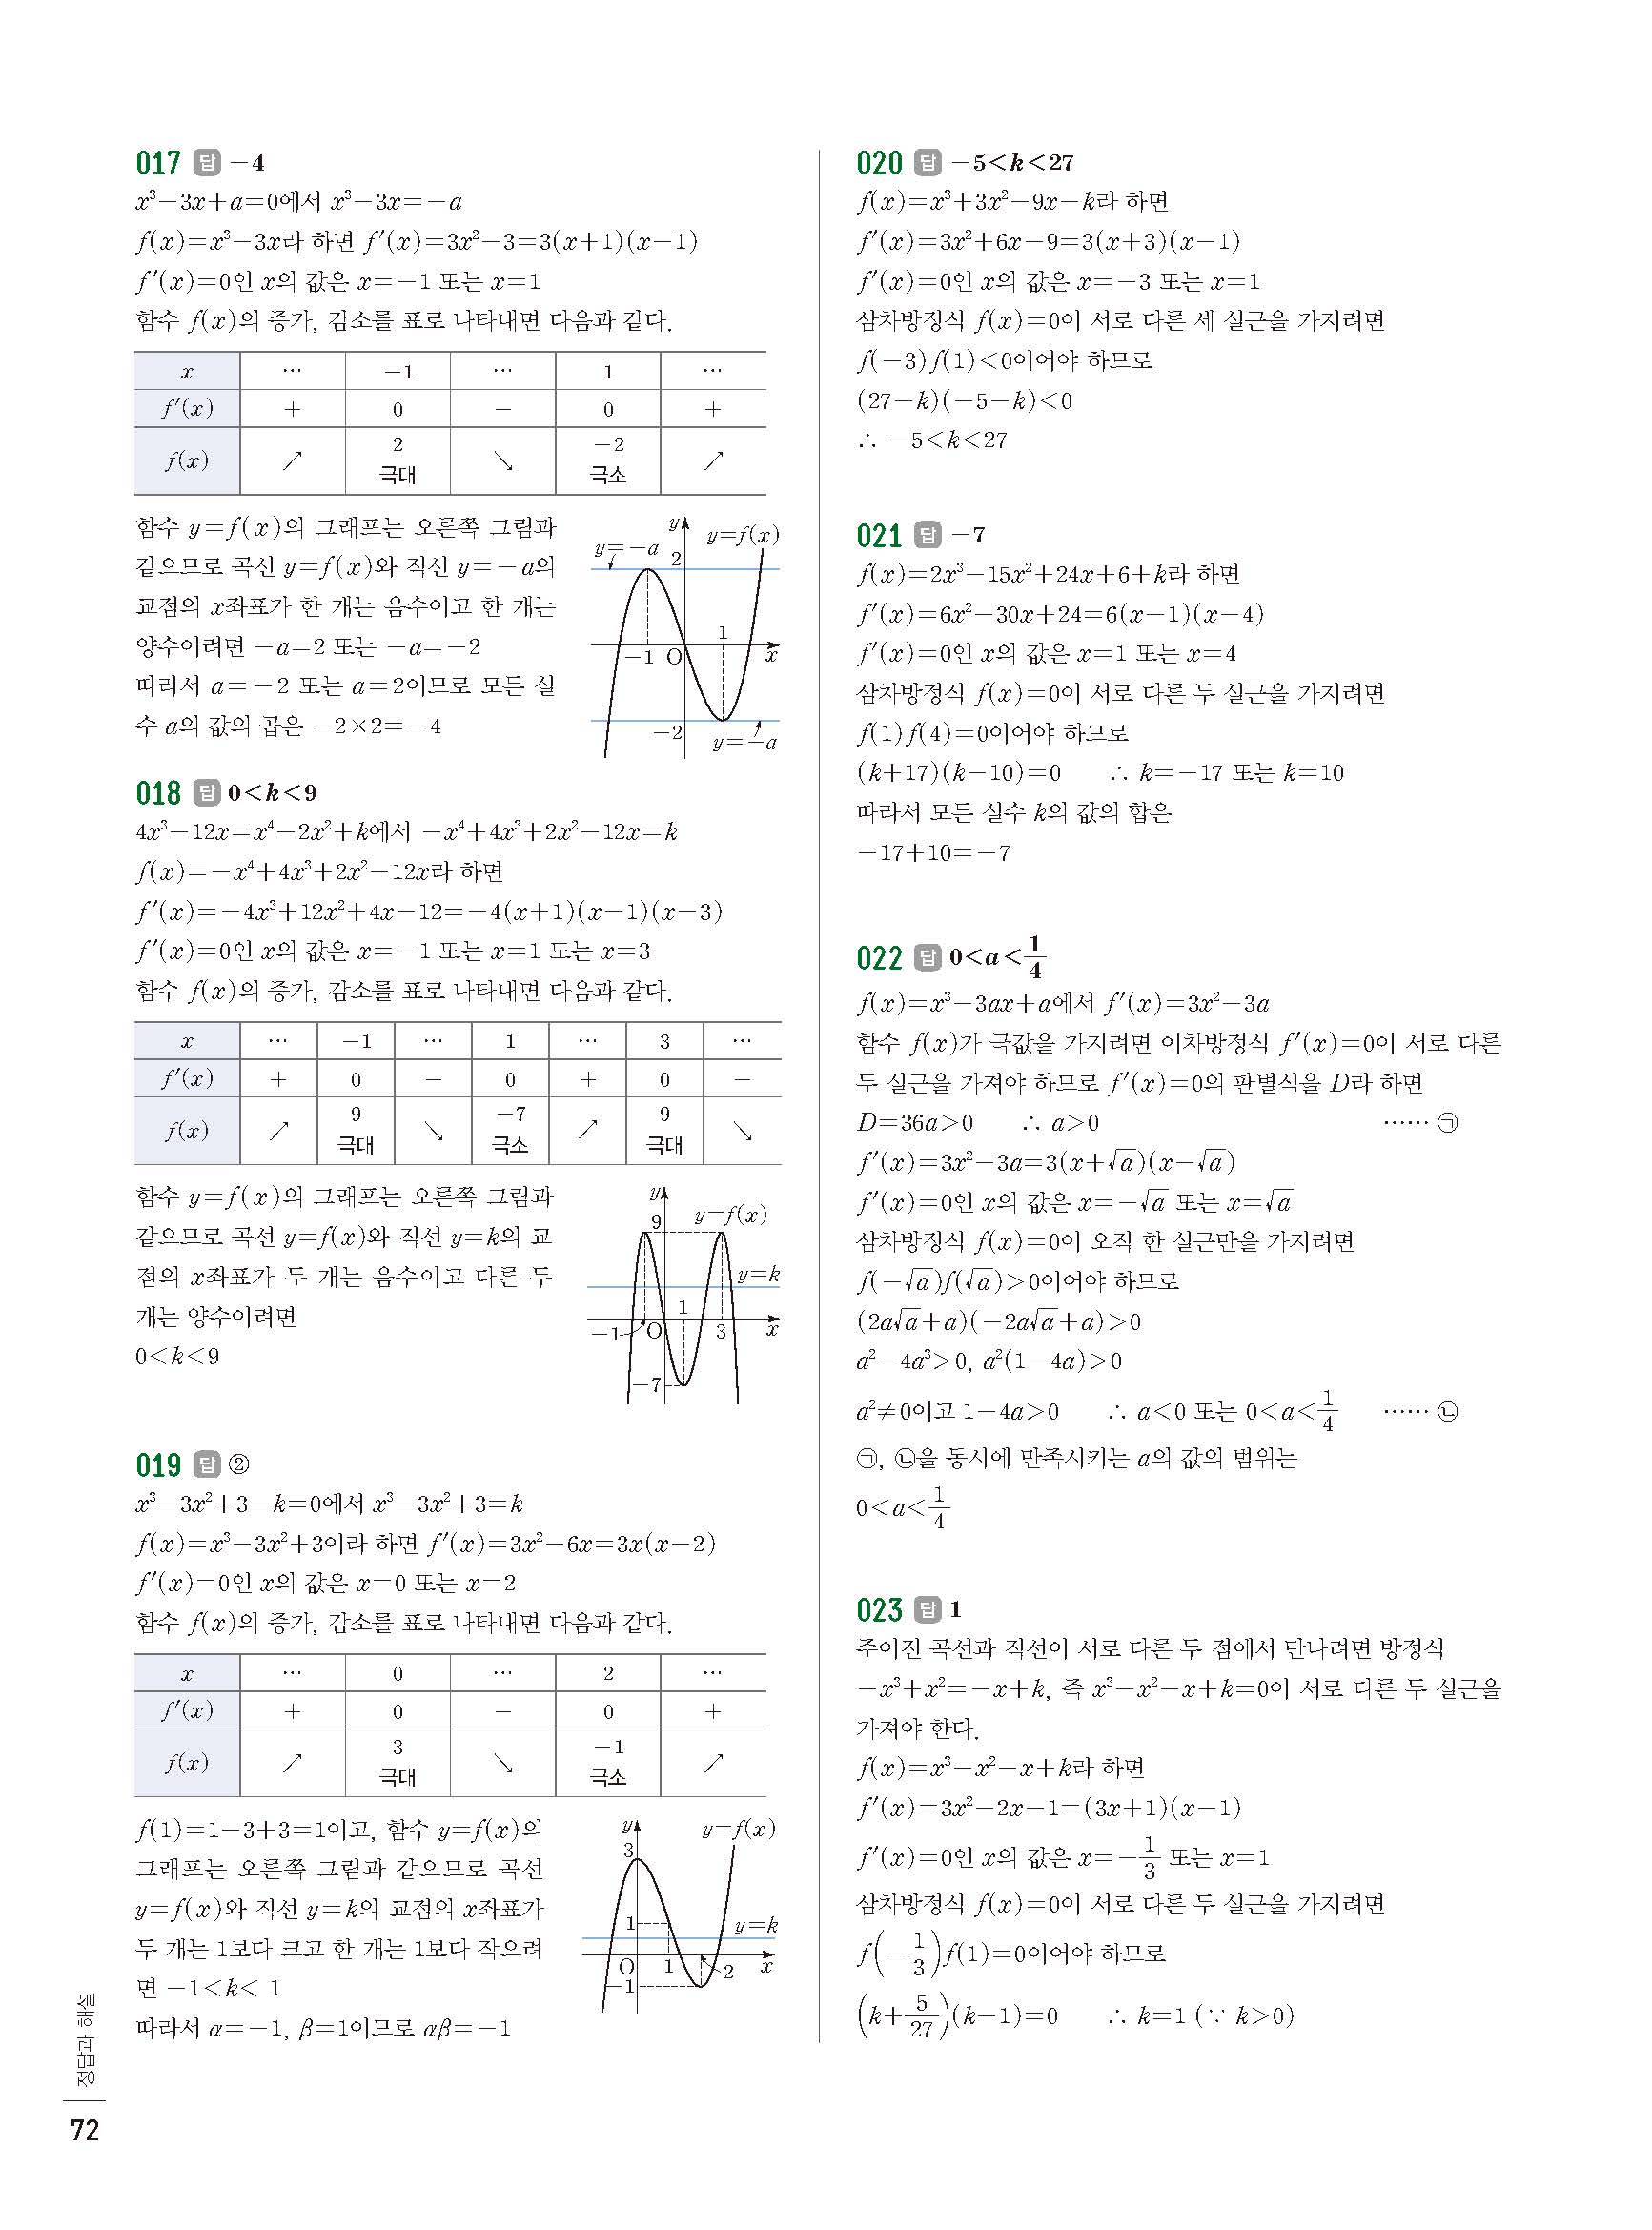 017 답 -4
x³-3x+a=0에서 x³-3x=-a
f(x)=x³-3x라 하면 f′(x)=3x²-3=3(x+1)(x-1)
f′(x)=0인 x의 값은 x=-1 또는 x=1
함수 f(x)의 증가, 감소를 표로 나타내면 다음과 같다.
x … -1 … 1 …
f′(x) + 0 - 0 +
f(x) ↗ 2 극대 ↘ -2 극소 ↗
함수 y=f(x)의 그래프는 오른쪽 그림과
같으므로 곡선 y=f(x)와 직선 y=-a의
교점의 x좌표가 한 개는 음수이고 한 개는
양수이려면 -a=2 또는 -a=-2
따라서 a=-2 또는 a=2이므로 모든 실
수 a의 값의 곱은 -2×2=-4
y y=f(x)
y=-a 2
1
-1 O x
-2
y=-a
018 답 0<k<9
4x³-12x=x⁴-2x²+k에서 -x⁴+4x³+2x²-12x=k
f(x)=-x⁴+4x³+2x²-12x라 하면
f′(x)=-4x³+12x²+4x-12=-4(x+1)(x-1)(x-3)
f′(x)=0인 x의 값은 x=-1 또는 x=1 또는 x=3
함수 f(x)의 증가, 감소를 표로 나타내면 다음과 같다.
x … -1 … 1 … 3 …
f′(x) + 0 - 0 + 0 -
f(x) ↗ 9 극대 ↘ -7 극소 ↗ 9 극대 ↘
함수 y=f(x)의 그래프는 오른쪽 그림과
같으므로 곡선 y=f(x)와 직선 y=k의 교
점의 x좌표가 두 개는 음수이고 다른 두
개는 양수이려면
0<k<9
y
9 y=f(x)
y=k
1
-1 O 3 x
-7
019 답 ②
x³-3x²+3-k=0에서 x³-3x²+3=k
f(x)=x³-3x²+3이라 하면 f′(x)=3x²-6x=3x(x-2)
f′(x)=0인 x의 값은 x=0 또는 x=2
함수 f(x)의 증가, 감소를 표로 나타내면 다음과 같다.
x … 0 … 2 …
f′(x) + 0 - 0 +
f(x) ↗ 3 극대 ↘ -1 극소 ↗
f(1)=1-3+3=1이고, 함수 y=f(x)의
그래프는 오른쪽 그림과 같으므로 곡선
y=f(x)와 직선 y=k의 교점의 x좌표가
두 개는 1보다 크고 한 개는 1보다 작으려
면 -1<k< 1
따라서 α=-1, β=1이므로 αβ=-1
y y=f(x)
3
1 y=k
O 1 2 x
-1
020 답 -5<k<27
f(x)=x³+3x²-9x-k라 하면
f′(x)=3x²+6x-9=3(x+3)(x-1)
f′(x)=0인 x의 값은 x=-3 또는 x=1
삼차방정식 f(x)=0이 서로 다른 세 실근을 가지려면
f(-3)f(1)<0이어야 하므로
(27-k)(-5-k)<0
∴ -5<k<27
021 답 -7
f(x)=2x³-15x²+24x+6+k라 하면
f′(x)=6x²-30x+24=6(x-1)(x-4)
f′(x)=0인 x의 값은 x=1 또는 x=4
삼차방정식 f(x)=0이 서로 다른 두 실근을 가지려면
f(1)f(4)=0이어야 하므로
(k+17)(k-10)=0 ∴ k=-17 또는 k=10
따라서 모든 실수 k의 값의 합은
-17+10=-7
022 답 0<a<1/4
f(x)=x³-3ax+a에서 f′(x)=3x²-3a
함수 f(x)가 극값을 가지려면 이차방정식 f′(x)=0이 서로 다른
두 실근을 가져야 하므로 f′(x)=0의 판별식을 D라 하면
D=36a>0 ∴ a>0 …… ㉠
f′(x)=3x²-3a=3(x+√a)(x-√a)
f′(x)=0인 x의 값은 x=-√a 또는 x=√a
삼차방정식 f(x)=0이 오직 한 실근만을 가지려면
f(-√a)f(√a)>0이어야 하므로
(2a√a+a)(-2a√a+a)>0
a²-4a³>0, a²(1-4a)>0
a²≠0이고 1-4a>0 ∴ a<0 또는 0<a<1/4 …… ㉡
㉠, ㉡을 동시에 만족시키는 a의 값의 범위는
0<a<1/4
023 답 1
주어진 곡선과 직선이 서로 다른 두 점에서 만나려면 방정식
-x³+x²=-x+k, 즉 x³-x²-x+k=0이 서로 다른 두 실근을
가져야 한다.
f(x)=x³-x²-x+k라 하면
f′(x)=3x²-2x-1=(3x+1)(x-1)
f′(x)=0인 x의 값은 x=-1/3 또는 x=1
삼차방정식 f(x)=0이 서로 다른 두 실근을 가지려면
f(-1/3)f(1)=0이어야 하므로
(k+5/27)(k-1)=0 ∴ k=1 (∵ k>0)
정답과 해설
72